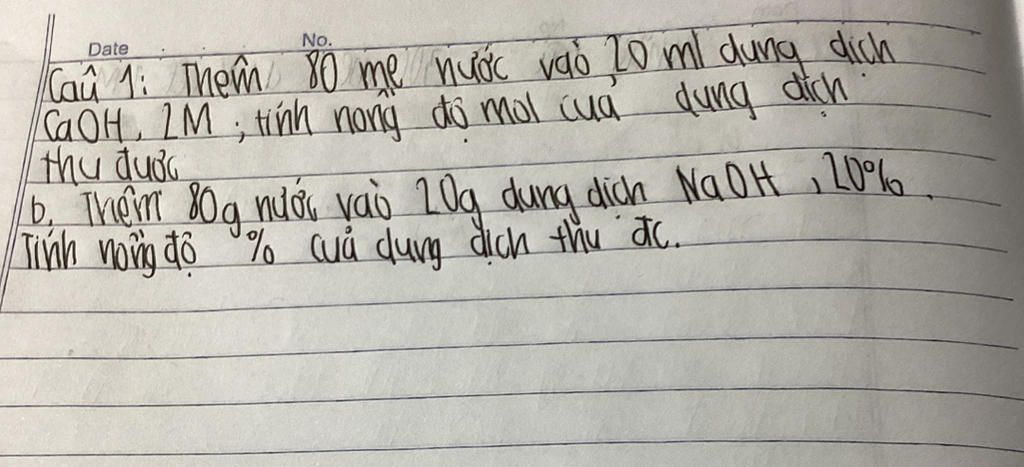 Date No.
Câu 1: Thêm 80 me nước vào 20 ml dung dịch
CaOH, 2M; tính nồng độ mol của dung dịch
thu được
b. Thêm 80g nước vào 20g dung dịch NaOH, 20%.
Tính nồng độ % của dung dịch thu đc.